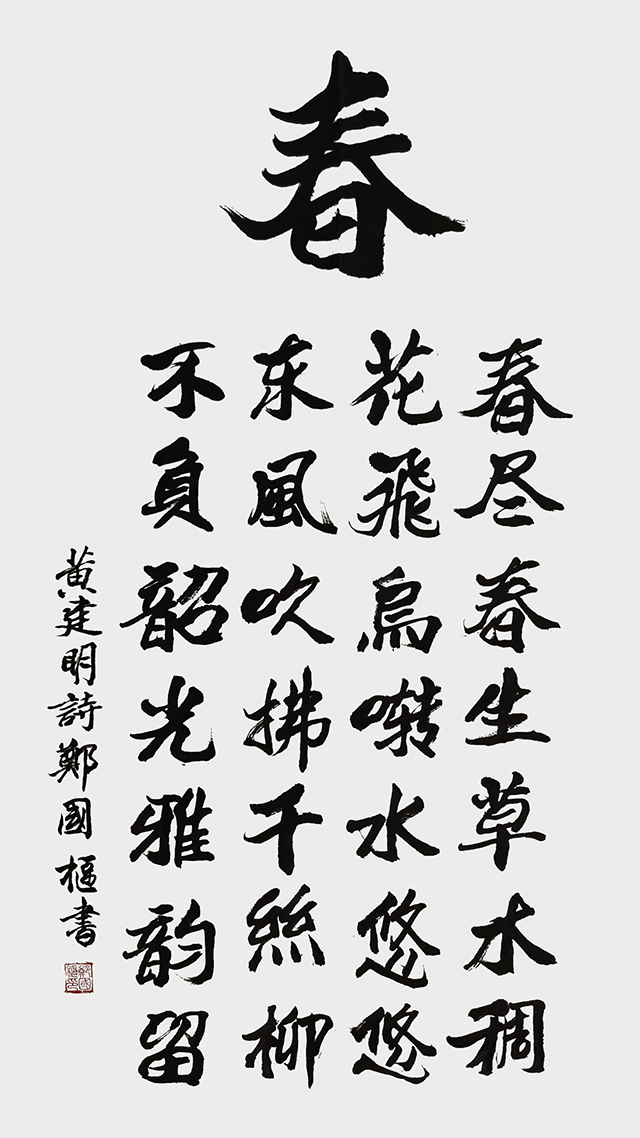 春
春尽春生草木稠
花飛鳥啭水悠悠
东風吹拂千絲柳
不負韶光雅韵留
黄建明詩鄭國樞書